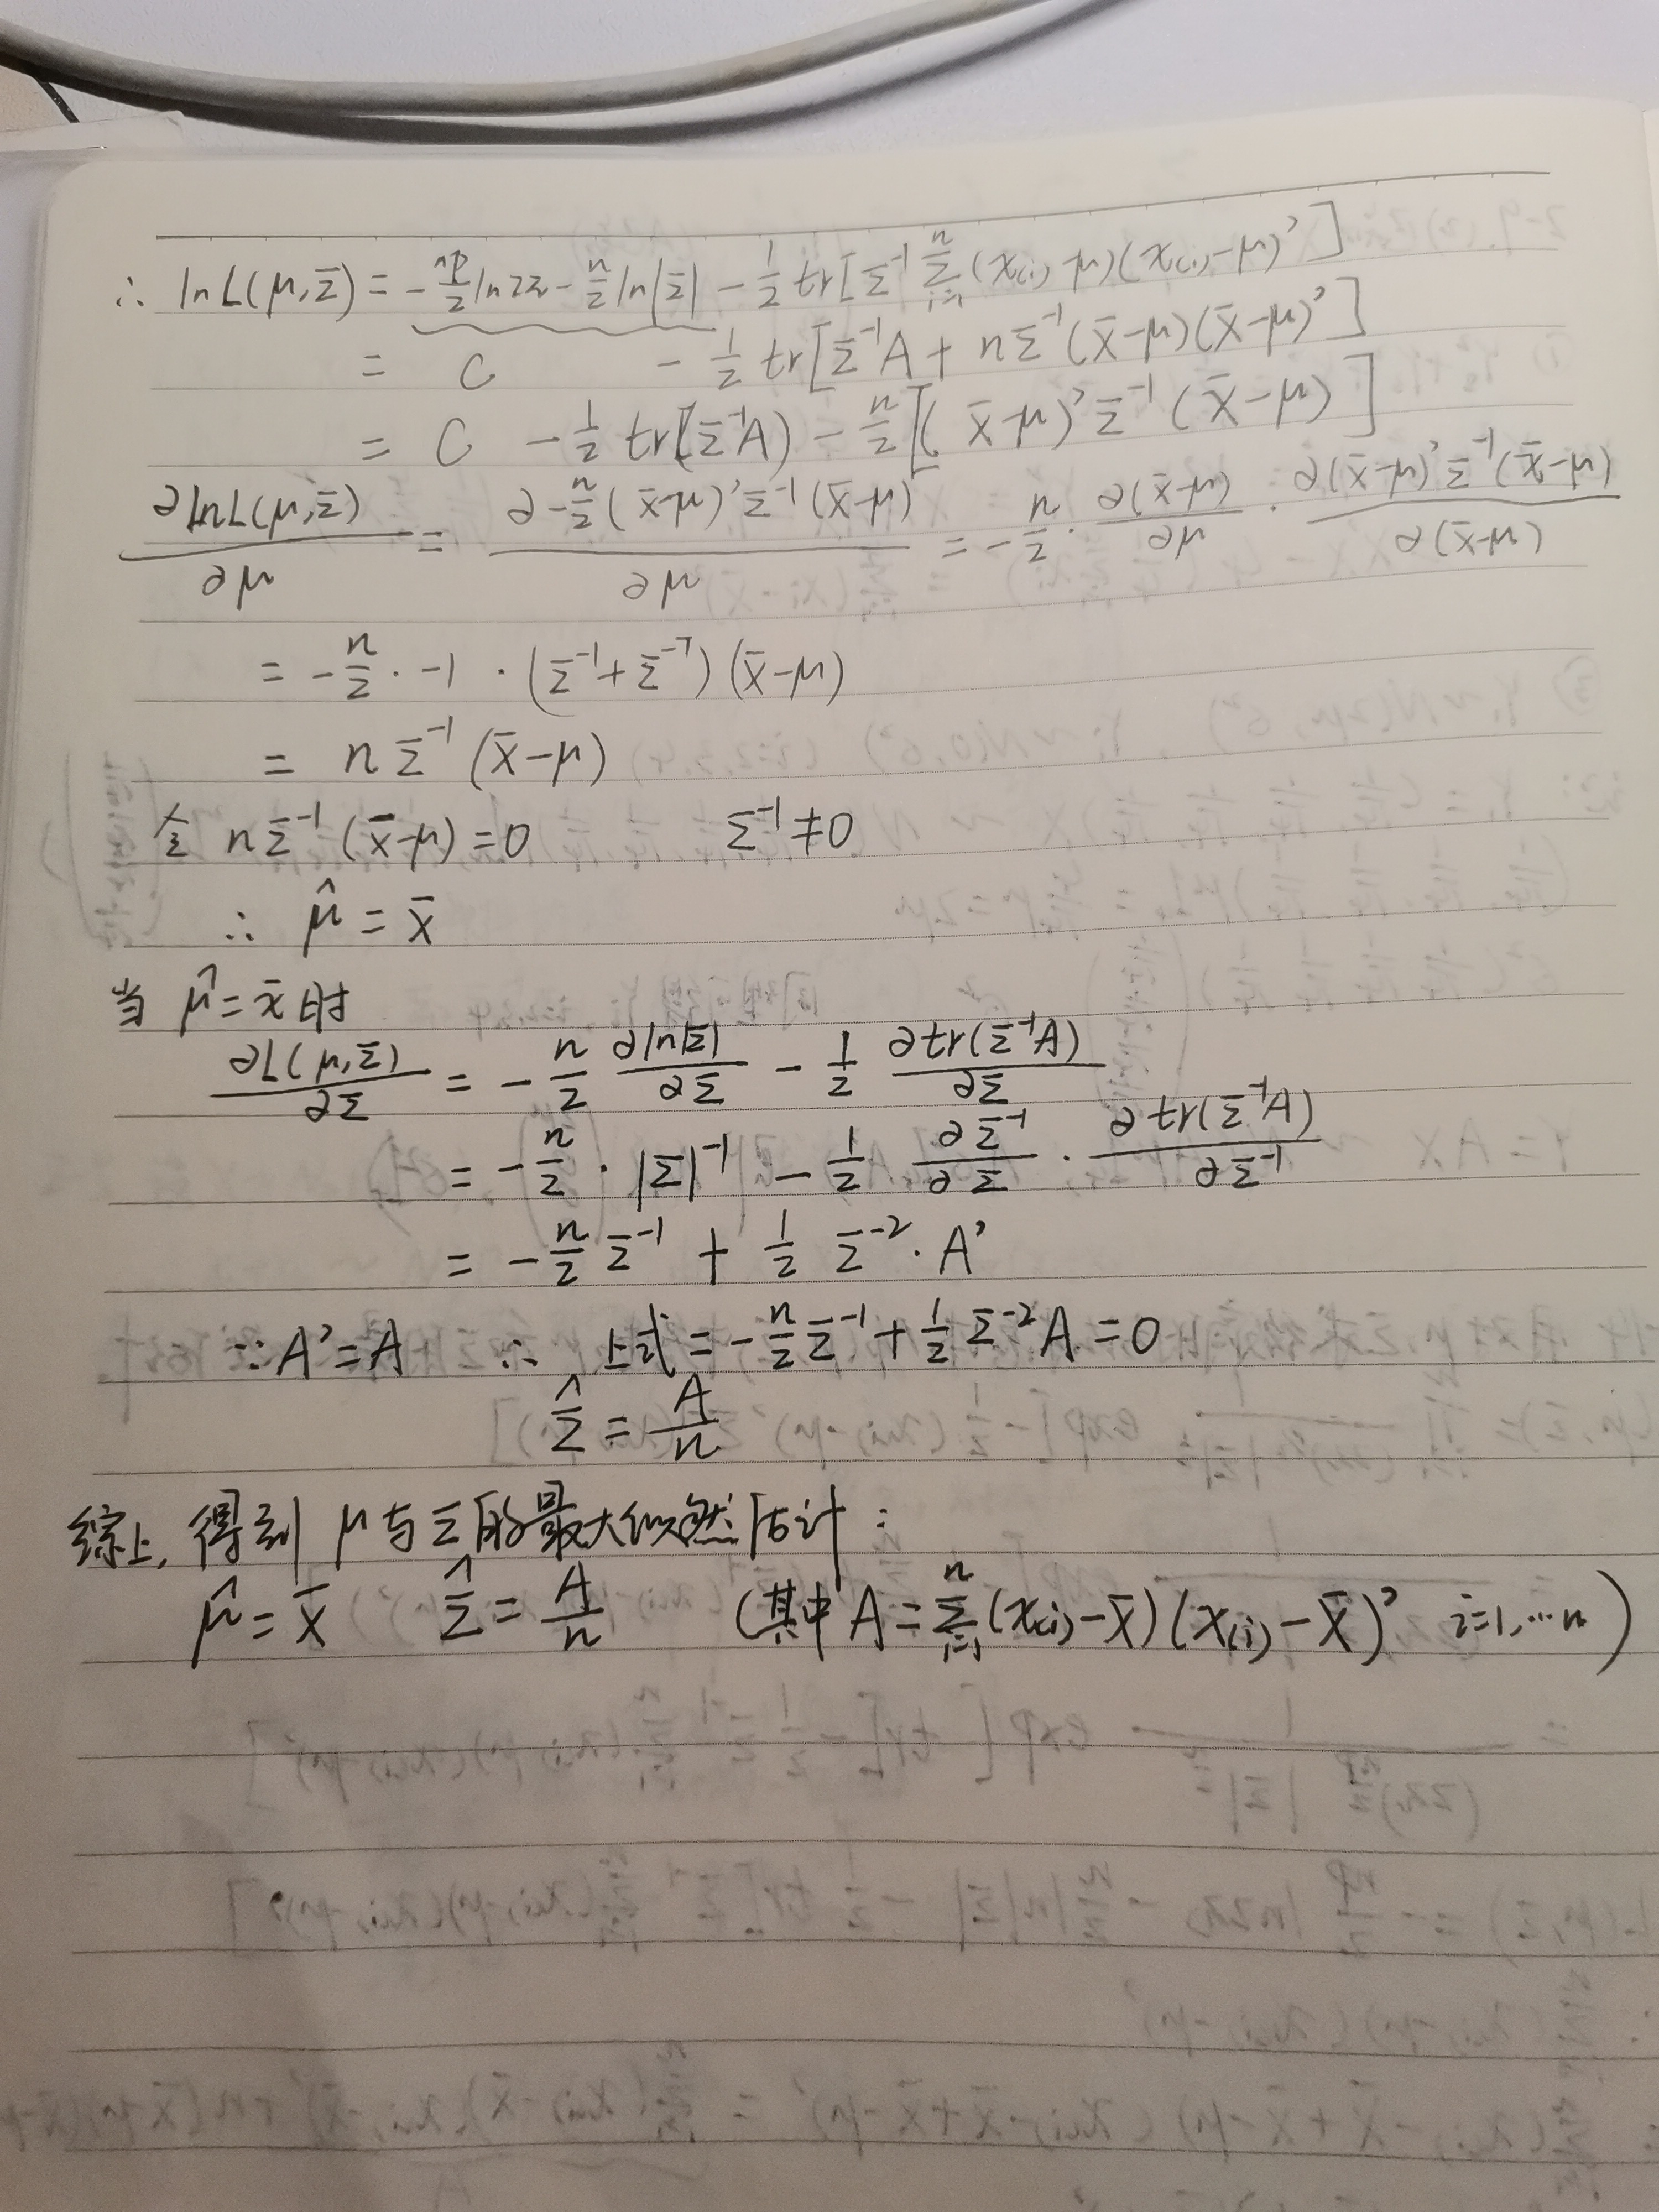 ∴ lnL(μ,Σ) = -np/2 ln2π - n/2 ln|Σ| - 1/2 tr[Σ⁻¹ Σᵢ₌₁ⁿ (x₍ᵢ₎-μ)(x₍ᵢ₎-μ)']
= C - 1/2 tr[Σ⁻¹A + nΣ⁻¹(x̄-μ)(x̄-μ)']
= C - 1/2 tr(Σ⁻¹A) - n/2 [(x̄-μ)'Σ⁻¹(x̄-μ)]
∂lnL(μ,Σ)/∂μ = ∂-n/2(x̄-μ)'Σ⁻¹(x̄-μ)/∂μ = -n/2 · ∂(x̄-μ)/∂μ · ∂(x̄-μ)'Σ⁻¹(x̄-μ)/∂(x̄-μ)
= -n/2 · -1 · (Σ⁻¹+Σ⁻ᵀ)(x̄-μ)
= nΣ⁻¹(x̄-μ)
令 nΣ⁻¹(x̄-μ)=0 Σ⁻¹≠0
∴ μ̂ = x̄
当 μ̂=x̄时
∂L(μ,Σ)/∂Σ = -n/2 ∂ln|Σ|/∂Σ - 1/2 ∂tr(Σ⁻¹A)/∂Σ
= -n/2 · |Σ|⁻¹ - 1/2 ∂Σ⁻¹/∂Σ · ∂tr(Σ⁻¹A)/∂Σ⁻¹
= -n/2 Σ⁻¹ + 1/2 Σ⁻²·A'
∵A'=A ∴ 上式=-n/2 Σ⁻¹+1/2 Σ⁻²A=0
Σ̂ = A/n
综上,得到 μ与Σ的最大似然估计:
μ̂=x̄ Σ̂=A/n (其中A=Σᵢ₌₁ⁿ(x₍ᵢ₎-x̄)(x₍ᵢ₎-x̄)' i=1,…n)